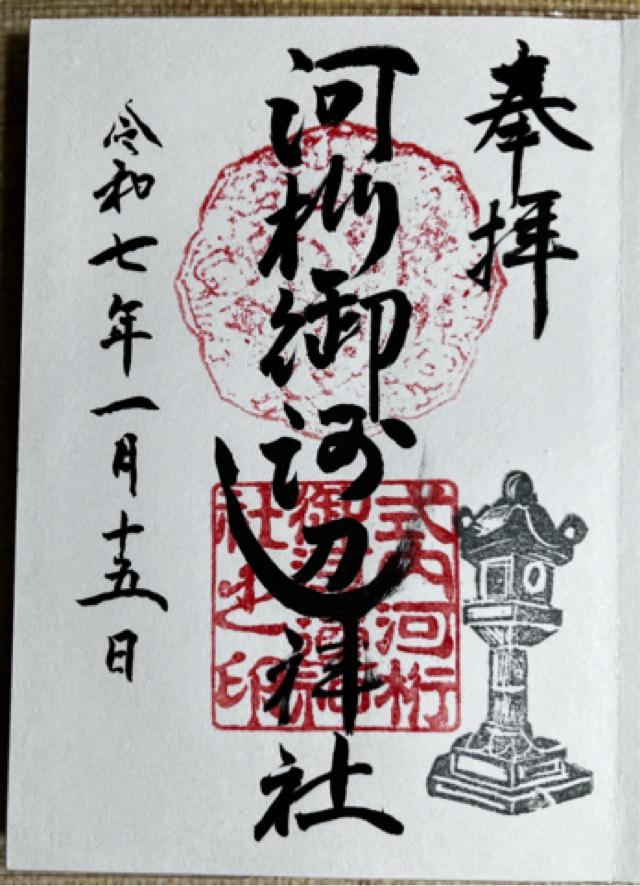 奉拝
河桁御河辺神社
令和七年一月十五日
式内河桁
御河邊神
社之印